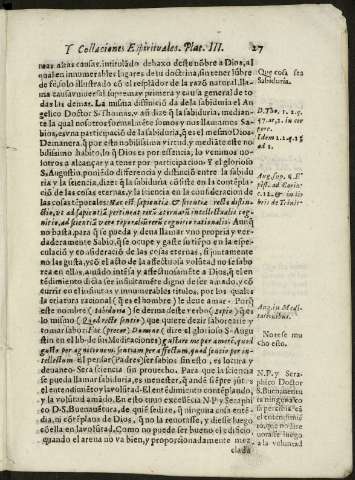 Y Collaciones Espirituales. Plat. III. 27
mas altas causas, intitulãdo debaxo deste nõbre a Dios, al
qual en innumerables lugares de su doctrina, sin tener lũbre
de fe, solo illustrado cõ el resplãdor de la razõ natural, lla-
ma causa vniuersal suprema y primera y causa general de to-
das las demas. La misma distinciõ da de la sabiduria el An-
gelico Doctor S. Thomas, y añ dize q̃ la sabiduria, median-
te la qual nosotros formalmẽte somos y nos llamamos Sa-
bios, es vna participaciõ de la sabiduria, q̃ es el mesmo Dios.
Demanera, q̃ por esta nobilissima virtud, y mediante este no
bilissimo habito, lo q̃ Dios es por essencia, lo venimos no-
sotros a alcançar y a tener por participacion. Y el glorioso
S. Augustin, poniẽdo differencia y distinciõ entre la sabidu
ria y la sciencia, dize: q̃ la sabiduria cõsiste en la contẽpla-
ciõ de las cosas eternas, y la sciencia en la consideracion de
las cosas tẽporales: Hæc est sapientiæ & scientiæ recta distin-
ctio, vt ad sapientiã pertineat rerũ æternarũ intellectualis cog-
nitio, ad scientiã vero tẽporaliũ rerũ cognitio rationalis. Aunq̃
no basta, para q̃ se pueda y deua llamar vno propria y ver-
daderamente Sabio, q̃ se ocupe y gaste su tiẽpo en la espe-
culaciõ y consideraciõ de las cosas eternas, si juntamente
no las gusta, y cõ el acto de la affectuosa volũtad no se sabo
rea en ellas, amãdo intẽsa y affectuosamẽte a Dios, q̃ el en-
tẽdimiento dicta ser infinitamẽte digno de ser amado, y cõ
currir en el infinitos y innumerables titulos, por los quales
la criatura racional (q̃ es el hombre) le deue amar. Porq̃
este nombre (sabiduria) se deriua deste verbo (sapio) q̃ es
lo mismo (Q̃ad rectè sentio) que, quiere dezir saborearse y
tomar sabor. Fac (precor) Domine (dize el glorioso S. Augu
stin en el lib. de sus Meditaciones) gustare me per amorẽ, quod
gusto per agnitionem, sentiam per affectum, quod sentio per in-
tellectum. El pensar (Padres) ser sabios sin esto, es locura y
deuaneo. Sera sciencia sin prouecho. Para que la sciencia
se pueda llamar sabiduria, es menester, q̃ ande siẽpre jũtos
el entendimiẽto y la volũtad. El entẽdimiẽto contẽplando,
y la volũtad amãdo. En esto tuuo excelẽcia N. P. y Seraphi
co D. S. Buenauẽtura, de quiẽ se dize, q̃ ninguna cosa entẽ-
dia, ni cõtẽplaua de Dios, q̃ no la remirasse, y diesse luego
cõ ella en la volũtad. Como no puede ser bueno el edificio,
quando el arena no va bien, y proporcionadamente mez-
clada
Que cosa sea
Sabiduria.
D. Tho. 1. 2. q.
Notese mu
cho esto.
N. P. y Sera-
phico Doctor
S. Buenauẽtu
ra de ninguna co
luego
a la voluntad